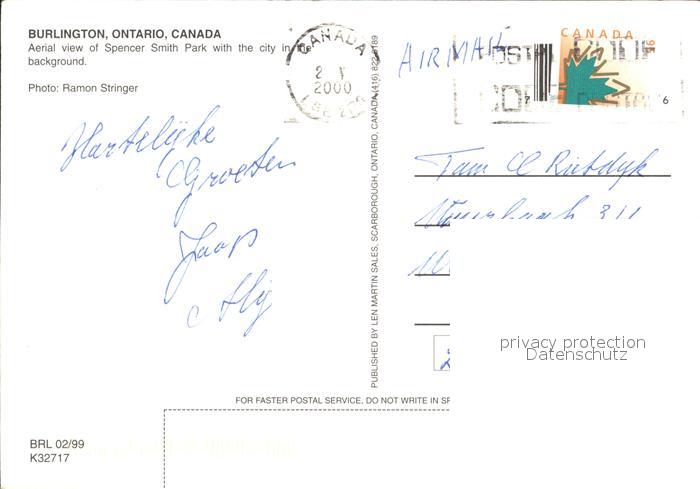 BURLINGTON, ONTARIO, CANADA
Aerial view of Spencer Smith Park with the city in the
background.
Photo: Ramon Stringer
CANADA
2 V
2000
AIRMAIL
POSTAL CODE
CODE POSTAL
CANADA
95
7
6
Hartelijke
Groeten
Jaap
Alij
PUBLISHED BY LEN MARTIN SALES, SCARBOROUGH, ONTARIO, CANADA (416) 822-9189
Fam
311
privacy protection
Datenschutz
FOR FASTER POSTAL SERVICE, DO NOT WRITE IN
BRL 02/99
K32717